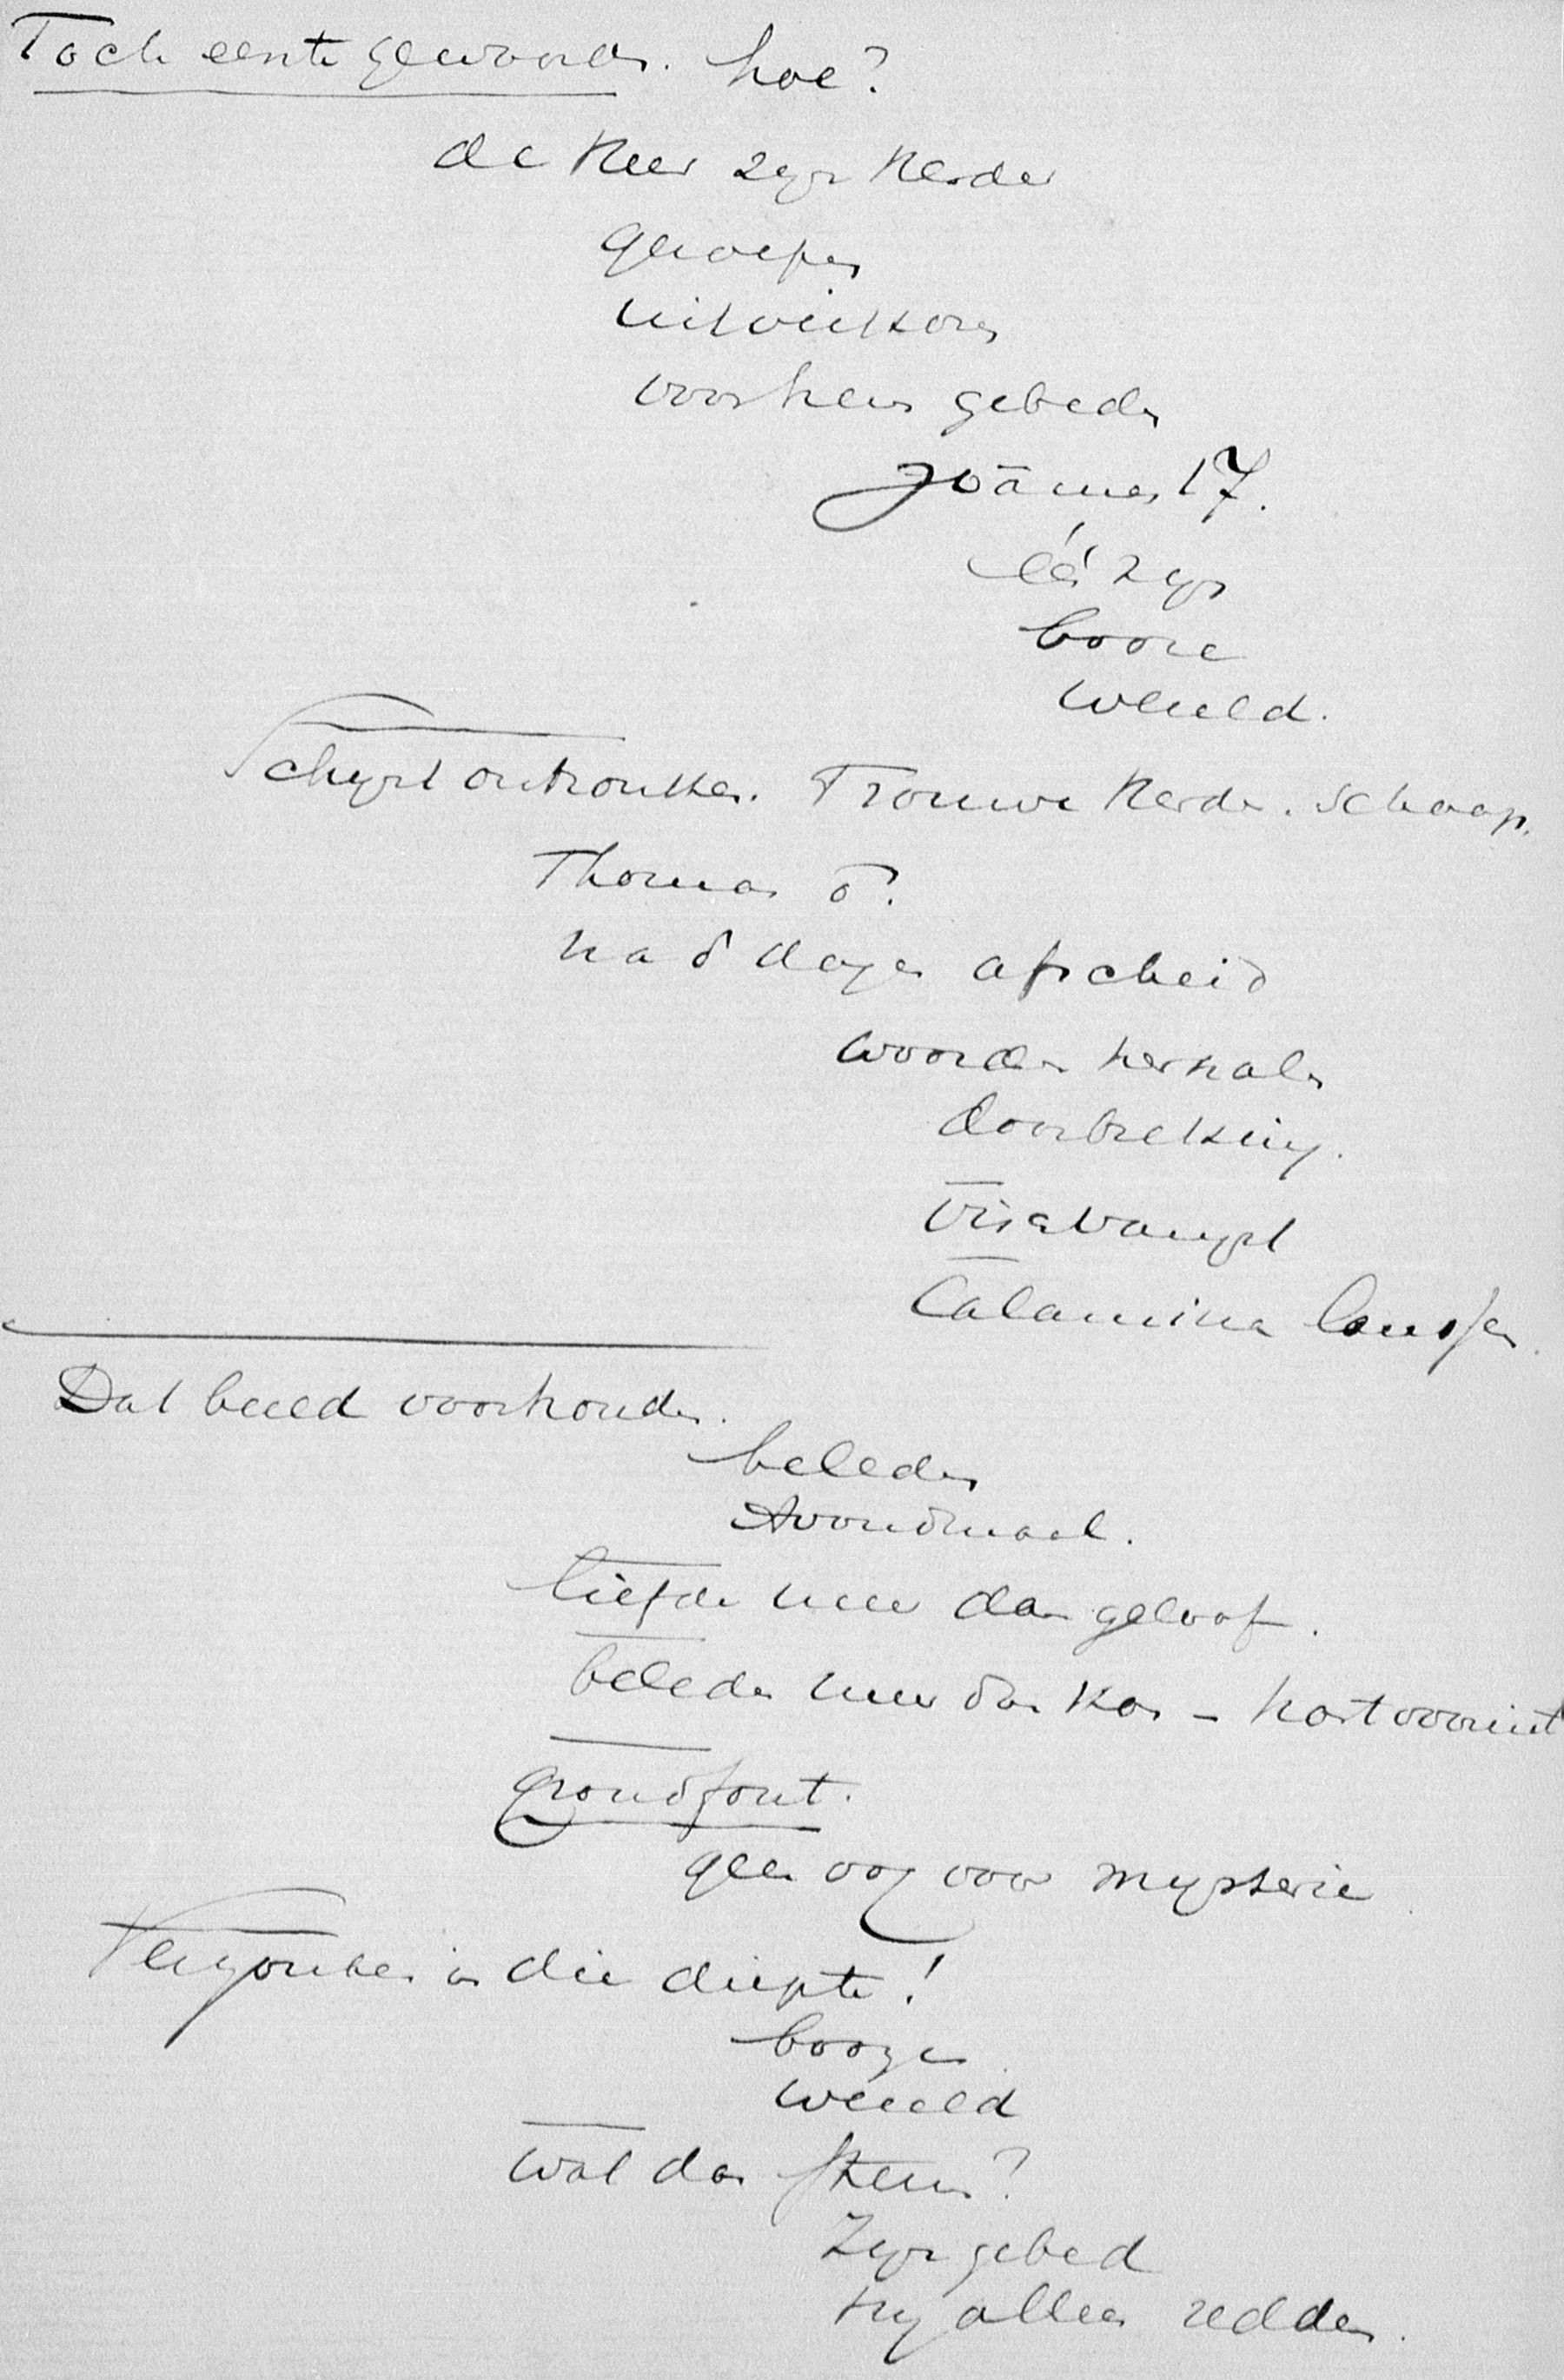 Toch eente geworden. hoe?
de Heer zyn Herder
geroepen
uitverkoren
voor hen gebeden
Joännes 17.
één zyn
booze
wereld.
Schynt ontrouw. Trouwe Herder. schaap.
Thomas ō.
na 8 dagen afscheid
woorden herhalen
doorbreking.
Vischvangst
Dat beeld voorhouden.
beleden
Avondmaal.
liefde meer dan geloof.
beleden meer dan kon - hart vooruit
grondfout.
geen oog voor mysterie
in die diepte!
booze
wereld
wat dan steun?
Zyn gebed
Hy alleen redden.